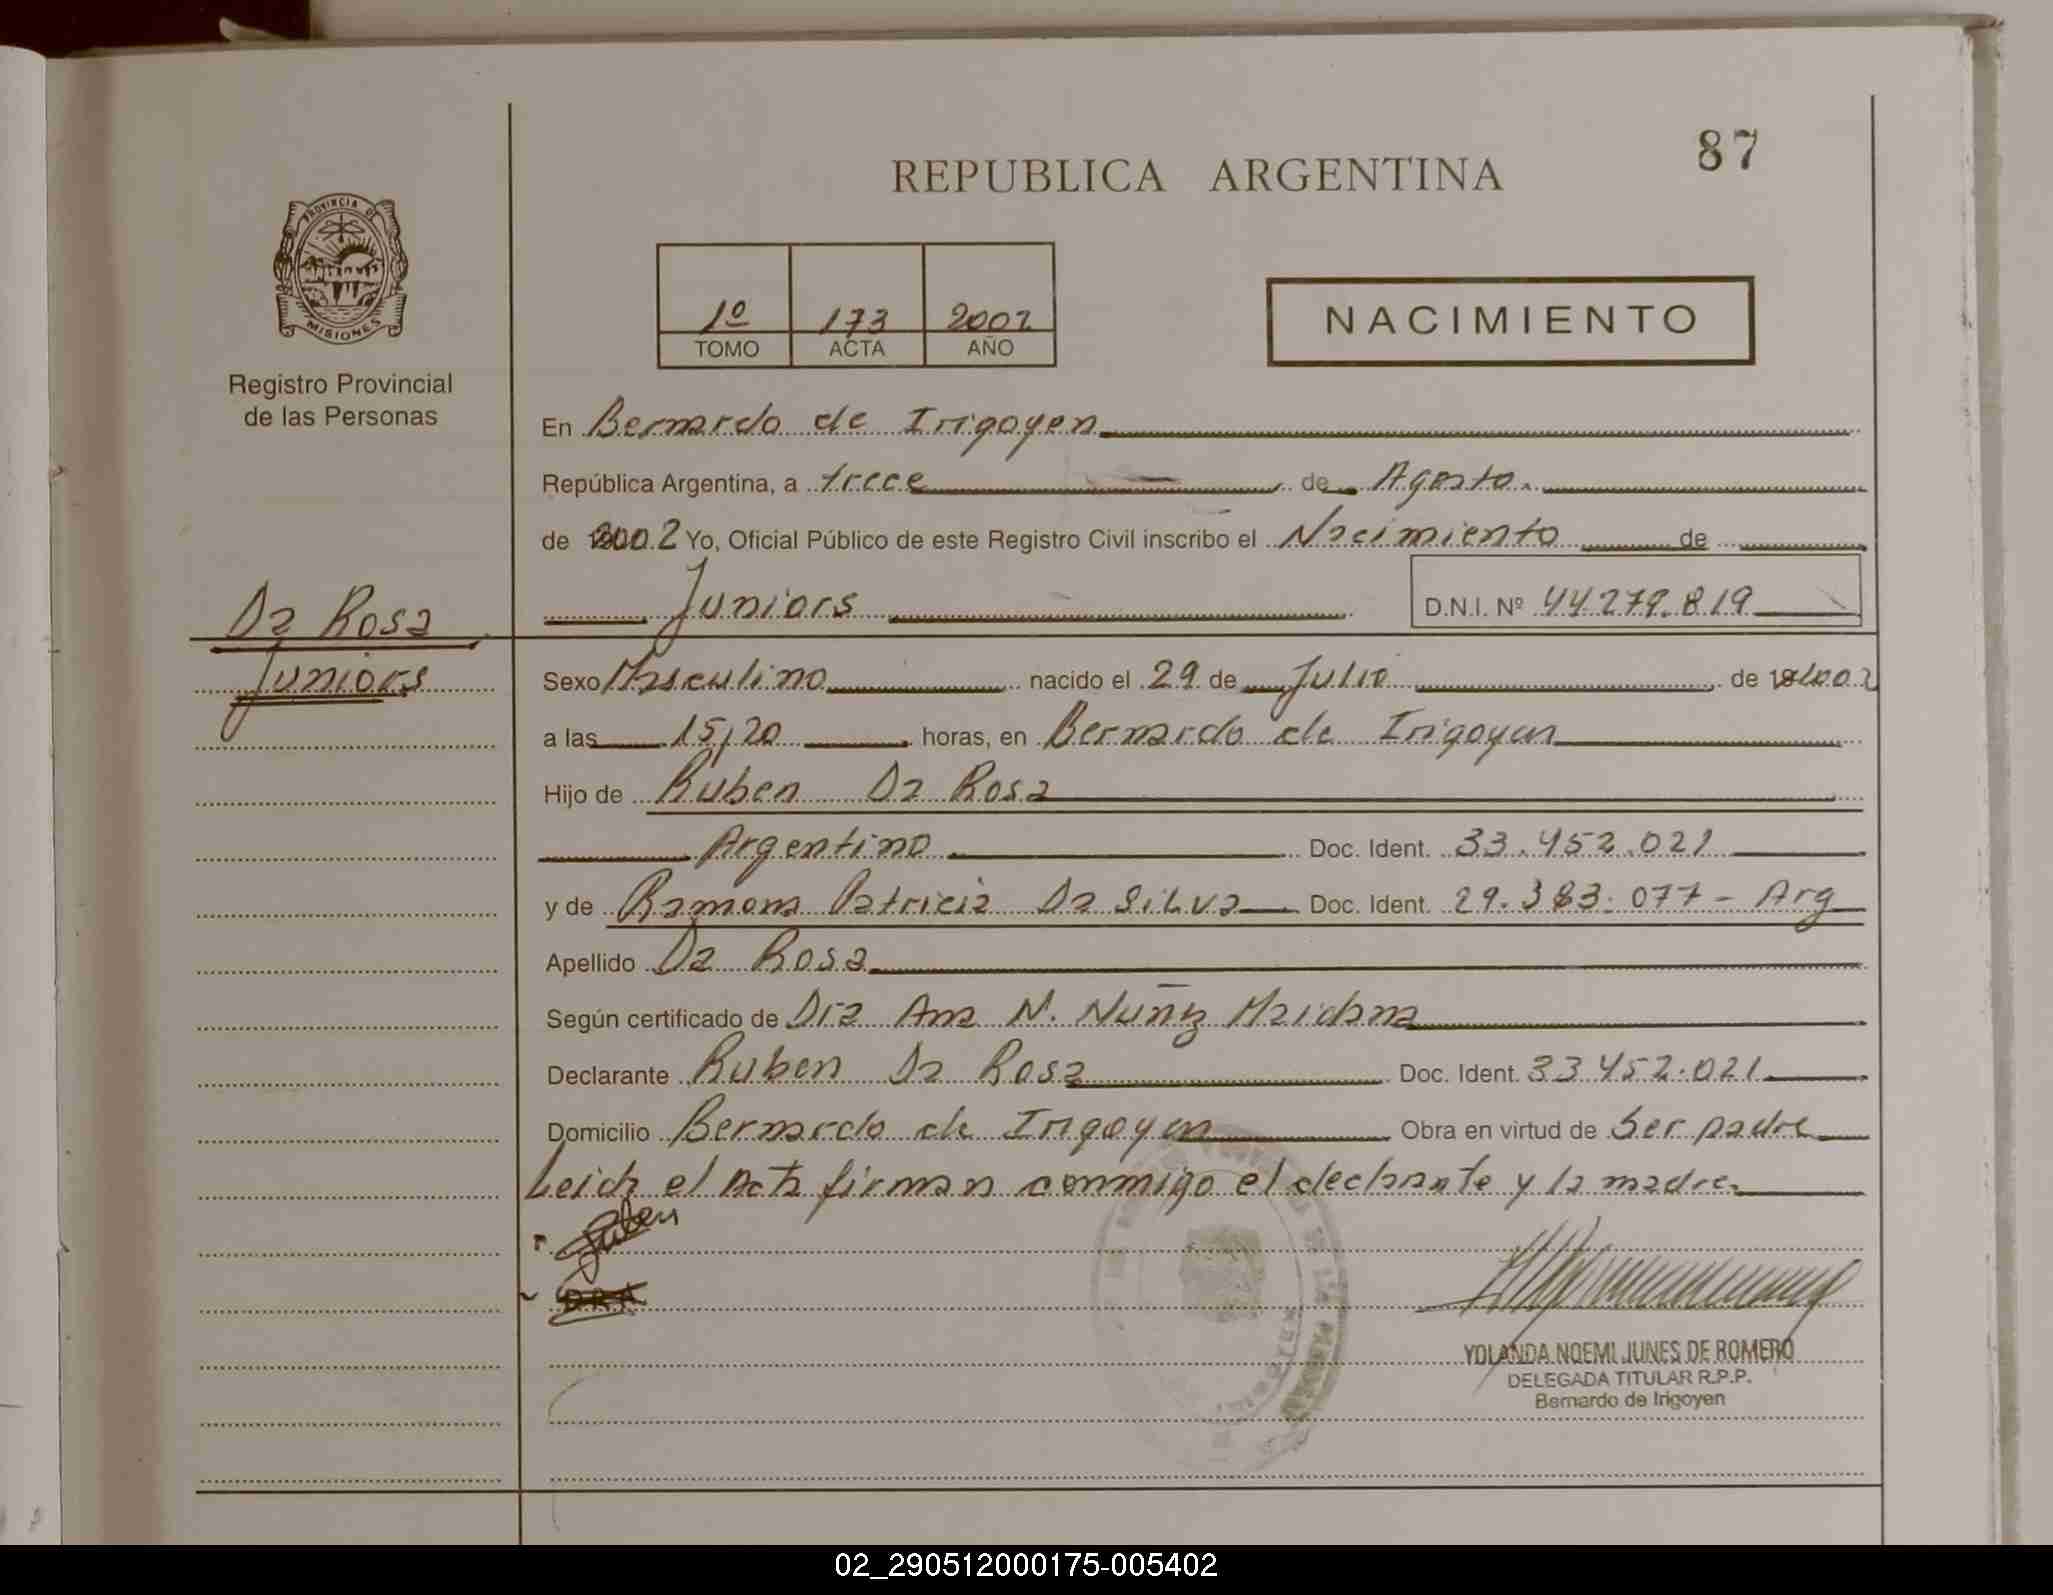 87
REPUBLICA ARGENTINA
PROVINCIA DE
MISIONES
Registro Provincial
de las Personas
1º 173 2002
TOMO ACTA AÑO
NACIMIENTO
En Bernardo de Irigoyen
República Argentina, a trece de Agosto.
de 2002 Yo, Oficial Público de este Registro Civil inscribo el Nacimiento de
Juniors D.N.I. Nº 44279.819
Da Rosa
Juniors
Sexo Masculino nacido el 29 de Julio de 2002
a las 15,20 horas, en Bernardo de Irigoyen
Hijo de Ruben Da Rosa
Argentino Doc. Ident. 33.452.021
y de Ramona Patricia Da Silva Doc. Ident. 29.383.077- Arg
Apellido Da Rosa
Según certificado de Dra Ana N. Nuñz Maidana
Declarante Ruben Da Rosa Doc. Ident. 33452.021
Domicilio Bernardo de Irigoyen Obra en virtud de Ser padre
Leida el Acta firman conmigo el declarante y la madre
YOLANDA NOEMI JUNES DE ROMERO
DELEGADA TITULAR R.P.P.
Bernardo de Irigoyen
02_290512000175-005402